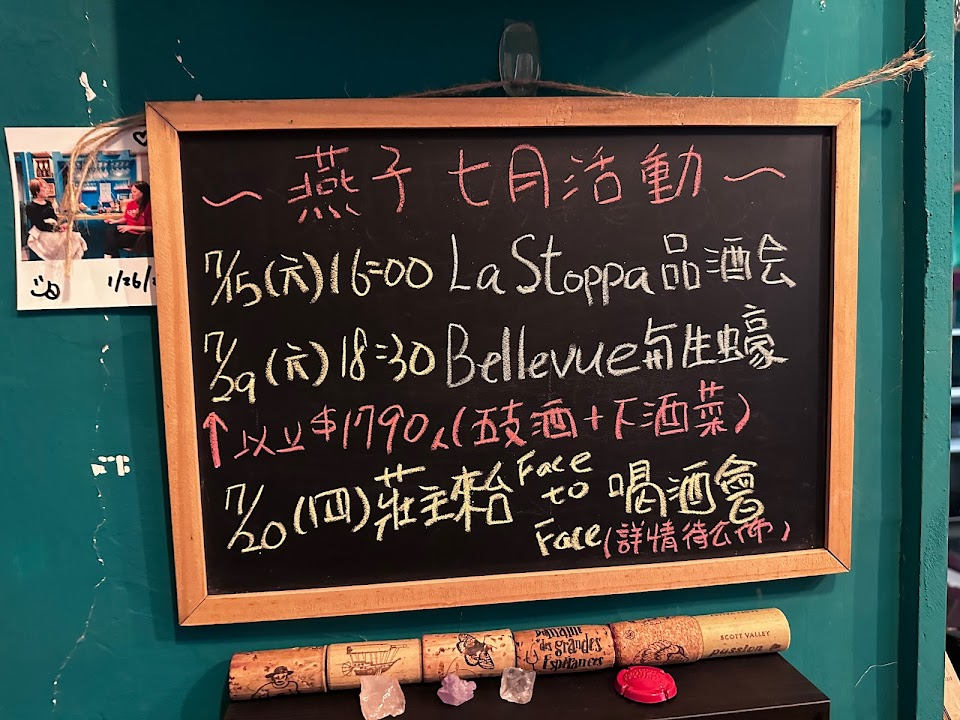 ～燕子 七月活動～
7/15(六)16:00 La Stoppa 品酒会
7/29(六)18:30 Bellevue与生蠔
↑以上$1790/人(5支酒+下酒菜)
7/20(四)莊主來台 Face to Face 喝酒會
(詳情待公佈)
1/26/
Domaine des grandes Espérances
SCOTT VALLEY
passion